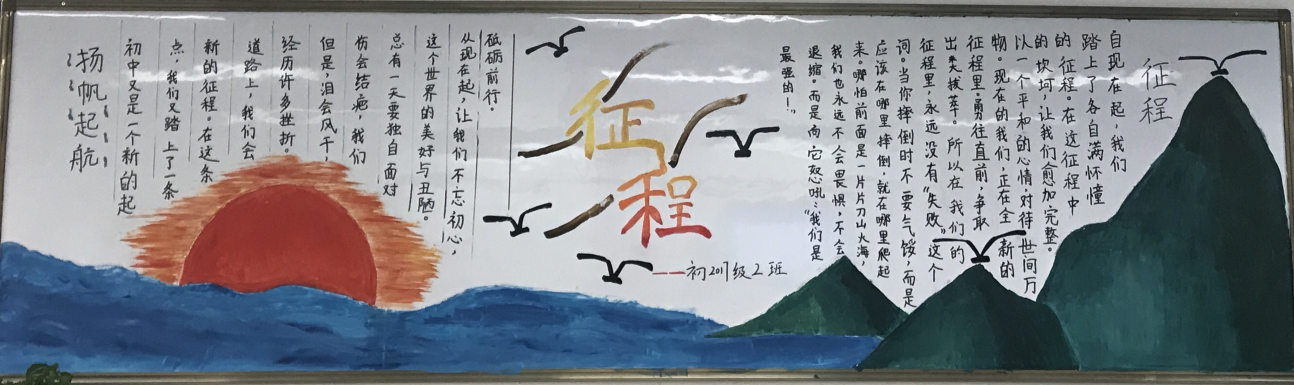 扬帆起航
初中又是一个新的起
点，我们又踏上了一条
新的征程。在这条
道路上，我们会
经历许多挫折。
但是，泪会风干，
伤会结疤，我们
总有一天要独自面对
这个世界的美好与丑陋。
从现在起，让我们不忘初心，
砥砺前行。
征程
——初2017级2班
征程
自现在起，我们
踏上了各自满怀憧
的征程。在这征程中
的坎坷，让我们愈加完整。
以一个平和的心情，对待世间万
物。现在的我们，正在全新的
征程里，勇往直前，争取
出类拔萃。所以在我们的
征程里，永远没有“失败”这个
词。当你摔倒时不要气馁，而是
应该在哪里摔倒，就在哪里爬起
来。哪怕前面是一片片刀山火海，
我们也永远不会畏惧，不会
退缩。而是向它怒吼：“我们是
最强的！”